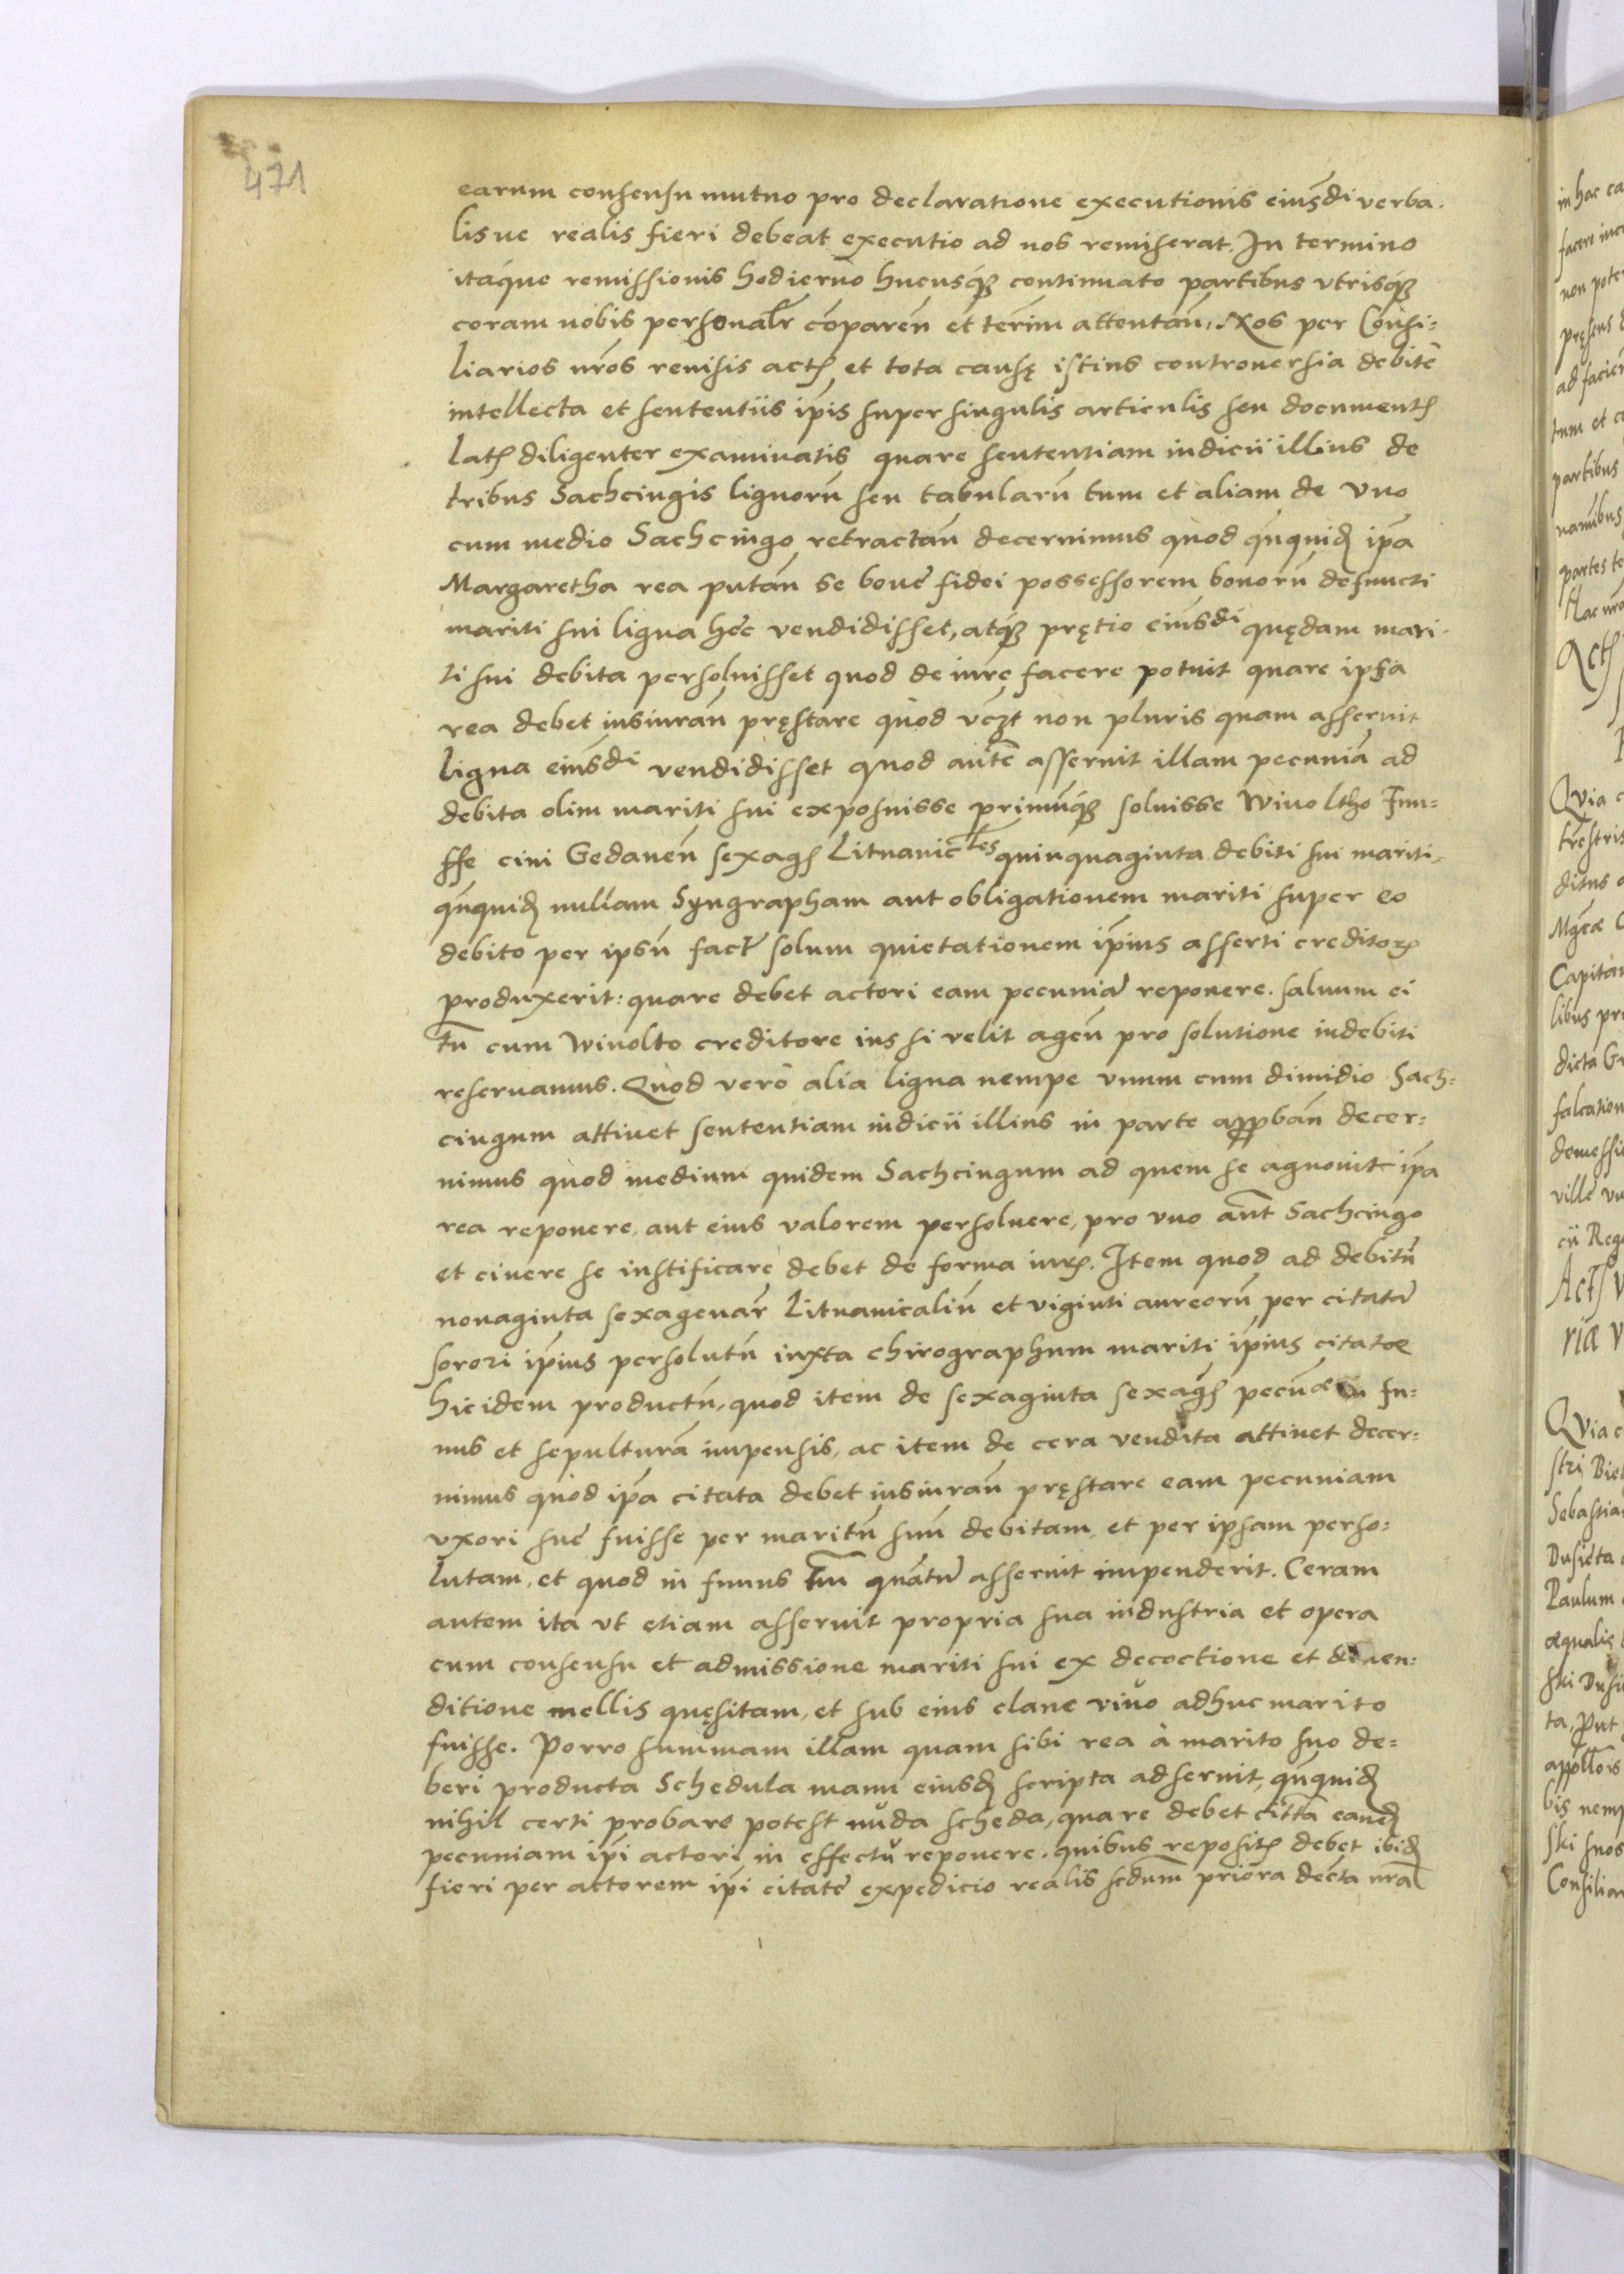 471
earum consensu mutuo pro declaratione executionis eiusdi verba.
lis ue realis fieri debeat executio ad nos remiserat. In termino
itaque remissionis hodierno hucusq continuato partibus vtrisq
coram nobis personalr comparen et termi attentan, Nos per Consi=
liarios nros reuisis actis et tota causę istius controuersia debite
intellecta et sententiis ipis super singulis articulis seu documentis
latis diligenter examinatis quare sententiam iudicii illius de
tribus Sachcingis lignoru seu tabularu tum et aliam de vno
cum medio Sachcingo retractan decernimus quod qnquid ipa
Margaretha rea putan se bone fidei possessorem bonoru defuncti
mariti sui ligna hec vendidisset, atq pretio eiusdi quędam mari.
ti sui debita persoluisset quod de iure facere potuit quare ipsa
rea debet iusiuran pręstare quod vczt non pluris quam asseruit
ligna eiusdi vendidisset quod aute asseruit illam pecunia ad
debita olim mariti sui exposuisse primuq soluisse Winoltho
ciui Gedanen sexags Lituanicles quinquaginta debiti sui mariti
qnquid nullam Syngrapham aut obligationem mariti super eo
debito per ipsu fact solum quietationem ipius asserti creditoris
produxerit: quare debet actori eam pecunia reponere. saluum ei
tn cum Winolto creditore ius si velit agen pro solutione indebiti
reseruamus. Quod vero alia ligna nempe vnum cum dimidio Sach=
cingum attinet sententiam iudicii illius in parte appban decer=
nimus quod medium quidem Sachcingum ad quem se agnouit ipa
rea reponere aut eius valorem persoluere, pro vno aut Sachcingo
et cinere se iustificare debet de forma iuris. Item quod ad debitu
nonaginta sexagenar Lituanicaliu et viginti aureoru per citata
sorori ipius persolutu iuxta chirographum mariti ipius citatae
hic idem productu, quod item de sexaginta sexags pecuae in fu=
nus et sepultura impensis, ac item de cera vendita attinet decer=
nimus quod ipa citata debet iusiuran pręstare eam pecuniam
vxori sue fuisse per maritu suu debitam, et per ipsam perso=
lutam, et quod in funus tm quatu asseruit impenderit. Ceram
autem ita vt etiam asseruit propria sua industria et opera
cum consensu et admissione mariti sui ex decoctione et diuen=
ditione mellis quęsitam, et sub eius claue viuo adhuc marito
fuisse. Porro summam illam quam sibi rea à marito suo de=
beri producta Schedula manu eiusd scripta adseruit, qnquid
nihil certi probare potest nuda scheda, quare debet citta eand
pecuniam ipi actori in effectu reponere. quibus repositis debet ibid
fieri per actorem ipi citate expedicio realis sedum priora decta nra